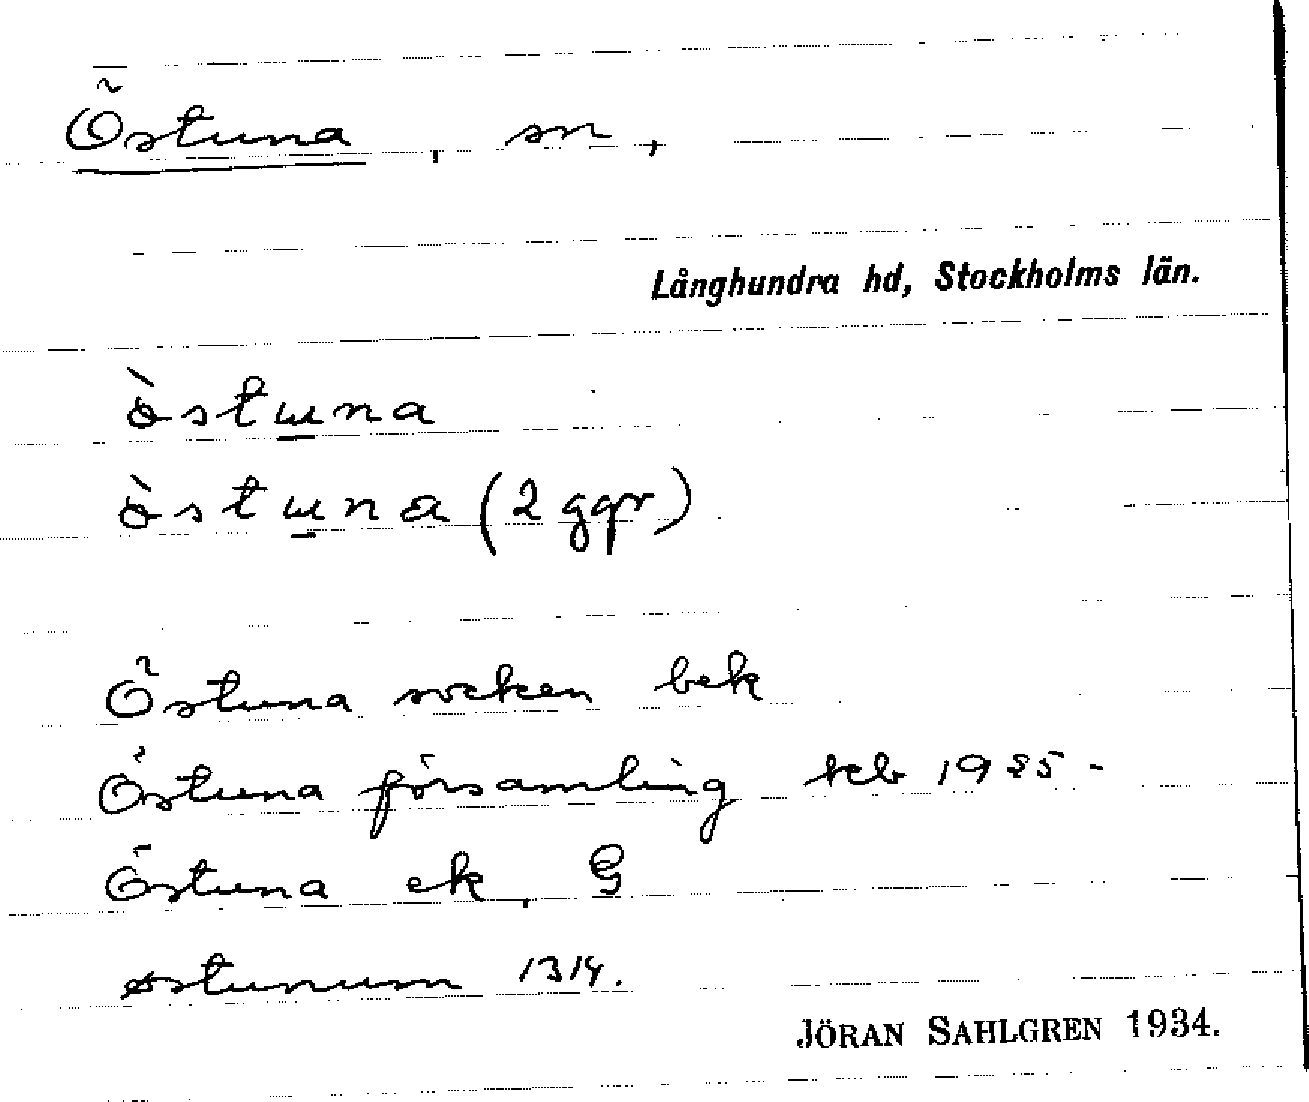 Östuna, sn,
Långhundra hd, Stockholms län.
ò̀stɯ̲na
ò̀stɯ̲na (2 ggr)
Östuna socken bek
Östuna församling kcb 1925-
Östuna ek, G
østunum 1314.
JÖRAN SAHLGREN 1934.